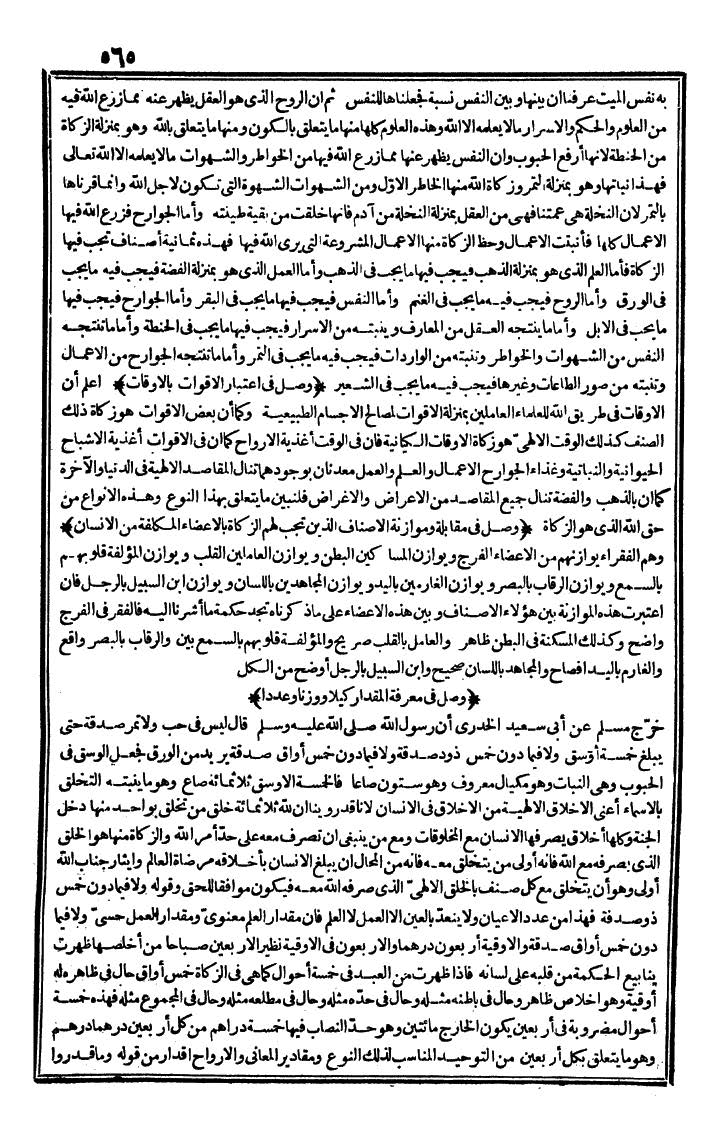 ٥٦٥
به نفس الميت عرفنا ان بينها وبين النفس نسبة فجعلناها للنفس ثم ان الروح الذى هو العقل يظهر عنه مما زرع الله فيه
من العلوم والحكم والاسرار مالا يعلمه الا الله وهذه العلوم كلها منها ما يتعلق بالكون ومنها ما يتعلق بالله وهو بمنزلة الزكاة
من الحنطة لانها أرفع الحبوب وان النفس يظهر عنها مما زرع الله فيها من الخواطر والشهوات مالا يعلمه الا الله تعالى
فهذا نباتها وهو بمنزلة التمر وزكاة الله منها الخاطر الاوّل ومن الشهوات الشهوة التى تكون لاجل الله وانما قرناها
بالتمر لان النخلة هى عمتنا فهى من العقل بمنزلة النخلة من آدم فانها خلقت من بقية طينته وأما الجوارح فزرع الله فيها
الاعمال كلها فأنبتت الاعمال وحظ الزكاة منها الاعمال المشروعة التى يرى الله فيها فهذه ثمانية أصناف تجب فيها
الزكاة فأما العلم الذى هو بمنزلة الذهب فيجب فيها ما يجب فى الذهب وأما العمل الذى هو بمنزلة الفضة فيجب فيه ما يجب
فى الورق وأما الروح فيجب فيه ما يجب فى الغنم وأما النفس فيجب فيها ما يجب فى البقر وأما الجوارح فيجب فيها
ما يجب فى الابل وأما ما ينتجه العقل من المعارف وينبته من الاسرار فيجب فيها ما يجب فى الحنطة وأما ما تنتجه
النفس من الشهوات والخواطر وتنبته من الواردات فيجب فيه ما يجب فى التمر وأما ما تنتجه الجوارح من الاعمال
وتنبته من صور الطاعات وغيرها فيجب فيه ما يجب فى الشعير ﴿وصل فى اعتبار الاقوات بالاوقات﴾ اعلم أن
الاوقات فى طريق الله للعلماء العاملين بمنزلة الاقوات لمصالح الاجسام الطبيعية وكما أن بعض الاقوات هو زكاة ذلك
الصنف كذلك الوقت الالهىّ هو زكاة الاوقات الكيانية فان فى الوقت أغذية الارواح كما ان فى الاقوات أغذية الاشباح
الحيوانية والنباتية وغذاء الجوارح الاعمال والعلم والعمل معدنان بوجودهما تنال المقاصد الالهية فى الدنيا والآخرة
كما ان بالذهب والفضة تنال جميع المقاصد من الاعراض والاغراض فلنبين ما يتعلق بهذا النوع وهذه الانواع من
حق الله الذى هو الزكاة ﴿وصل فى مقابلة وموازنة الاصناف الذين تجب لهم الزكاة بالاعضاء المكلفة من الانسان﴾
وهم الفقراء يوازنهم من الاعضاء الفرج ويوازن المساكين البطن ويوازن العاملين القلب ويوازن المؤلفة قلوبهم
بالسمع ويوازن الرقاب بالبصر ويوازن الغارمين باليد ويوازن المجاهدين باللسان ويوازن ابن السبيل بالرجل فان
اعتبرت هذه الموازنة بين هؤلاء الاصناف وبين هذه الاعضاء على ماذكرناه تجد حكمة ما أشرنا اليه فالفقر فى الفرج
واضح وكذلك المسكنة فى البطن ظاهر والعامل بالقلب صريح والمؤلفة قلوبهم بالسمع بين والرقاب بالبصر واقع
والغارم باليد افصاح والمجاهد باللسان صحيح وابن السبيل بالرجل أوضح من الكل
﴿وصل فى معرفة المقدار كيلا ووزنا وعددا﴾
خرّج مسلم عن أبى سعيد الخدرى أن رسول الله صلى الله عليه وسلم قال ليس فى حب ولا تمر صدقة حتى
يبلغ خمسة أوسق ولا فيما دون خمس ذود صدقة ولا فيما دون خمس أواق صدقة يريد من الورق فجعل الوسق فى
الحبوب وهى النبات وهو مكيال معروف وهو ستون صاعا فالخمسة الاوسق ثلاثمائة صاع وهو ما ينبته التخلق
بالاسماء أعنى الاخلاق الالهية من الاخلاق فى الانسان لانا قدر وينا ان لله ثلاثمائة خلق من تخلق بواحد منها دخل
الجنة وكلها أخلاق يصرفها الانسان مع المخلوقات ومع من ينبغى ان تصرف معه على حدّ أمر الله والزكاة منها هو الخلق
الذى يصرفه مع الله فانه أولى من يتخلق معه فانه من المحال ان يبلغ الانسان بأخلاقه مرضاة العالم وايثار جناب الله
أولى وهو أن يتخلق مع كل صنف بالخلق الالهىّ الذى صرفه الله معه فيكون موافقا للحق وقوله ولا فيما دون خمس
ذود صدقة فهذا من عدد الاعيان ولا ينعدّ بالعين الا العمل لا العلم فان مقدار العلم معنوىّ ومقدار العمل حسىّ ولا فيما
دون خمس أواق صدقة والاوقية أربعون درهما والاربعون فى الاوقية نظير الاربعين صباحا من أخلصها ظهرت
ينابيع الحكمة من قلبه على لسانه فاذا ظهرت من العبد فى خمسة أحوال كما هى فى الزكاة خمس أواق حال فى ظاهره له
أوقية وهو اخلاص ظاهر وحال فى باطنه مثله وحال فى حدّه مثله وحال فى مطلعه مثله وحال فى المجموع مثله فهذه خمسة
أحوال مضروبة فى أربعين يكون الخارج مائتين وهو حدّ النصاب فيها خمسة دراهم من كل أربعين درهما درهم
وهو ما يتعلق بكل أربعين من التوحيد المناسب لذلك النوع ومقادير المعانى والارواح اقدار من قوله وما قدروا